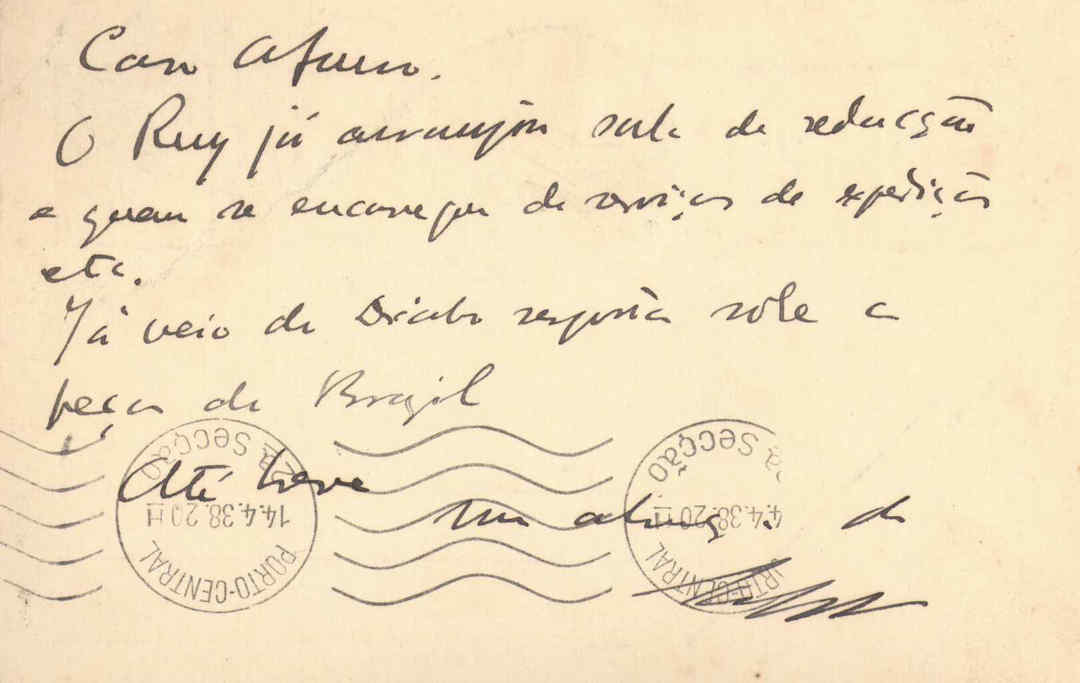 Caro Afonso.
O Ruy já arranjou sala de redacção
e quem se encarregou de serviços de expedição
etc.
Já veio do resposta sobre a
peça do Brazil
Até breve
Um abraço de
2ª Secção
14.4.38.20 H
PORTO-CENTRAL
ª Secção
4.4.38.20 H
RTO-CENTRAL